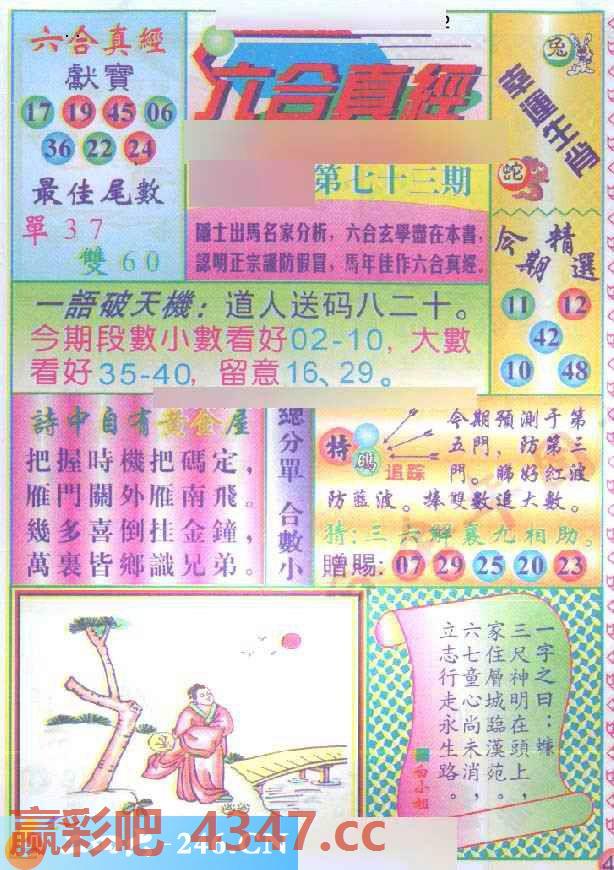 六合真經
獻寶
17 19 45 06
36 22 24
最佳尾數
單 37
雙 60
六合真經
第七十三期
隱士出馬名家分析，六合玄學盡在本書，
認明正宗謹防假冒，馬年佳作六合真經。
兔
蛇
今期精選
11 12
42
10 48
一語破天機：道人送码八二十。
今期段數小數看好02-10，大數
看好35-40，留意16、29。
詩中自有黃金屋
把握時機把碼定，
雁門關外雁南飛。
幾多喜倒挂金鐘，
萬裏皆鄉識兄弟。
總分單 合數小
特碼追踪
今期預測于第
五門，防第三
門。睇好紅波
防藍波。捧雙數追大數。
猜：三六解裏九相助。
贈賜：07 29 25 20 23
一字之曰：蠊
三尺神明在頭上，
家住層城臨漢苑。
六七童心尚未消，
立志行走永生路。
白小姐
赢彩吧 4347.cc
246.CN
4